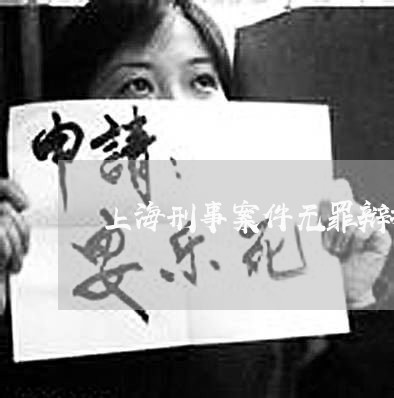 申請：
上海刑事案件无罪辩
安乐死